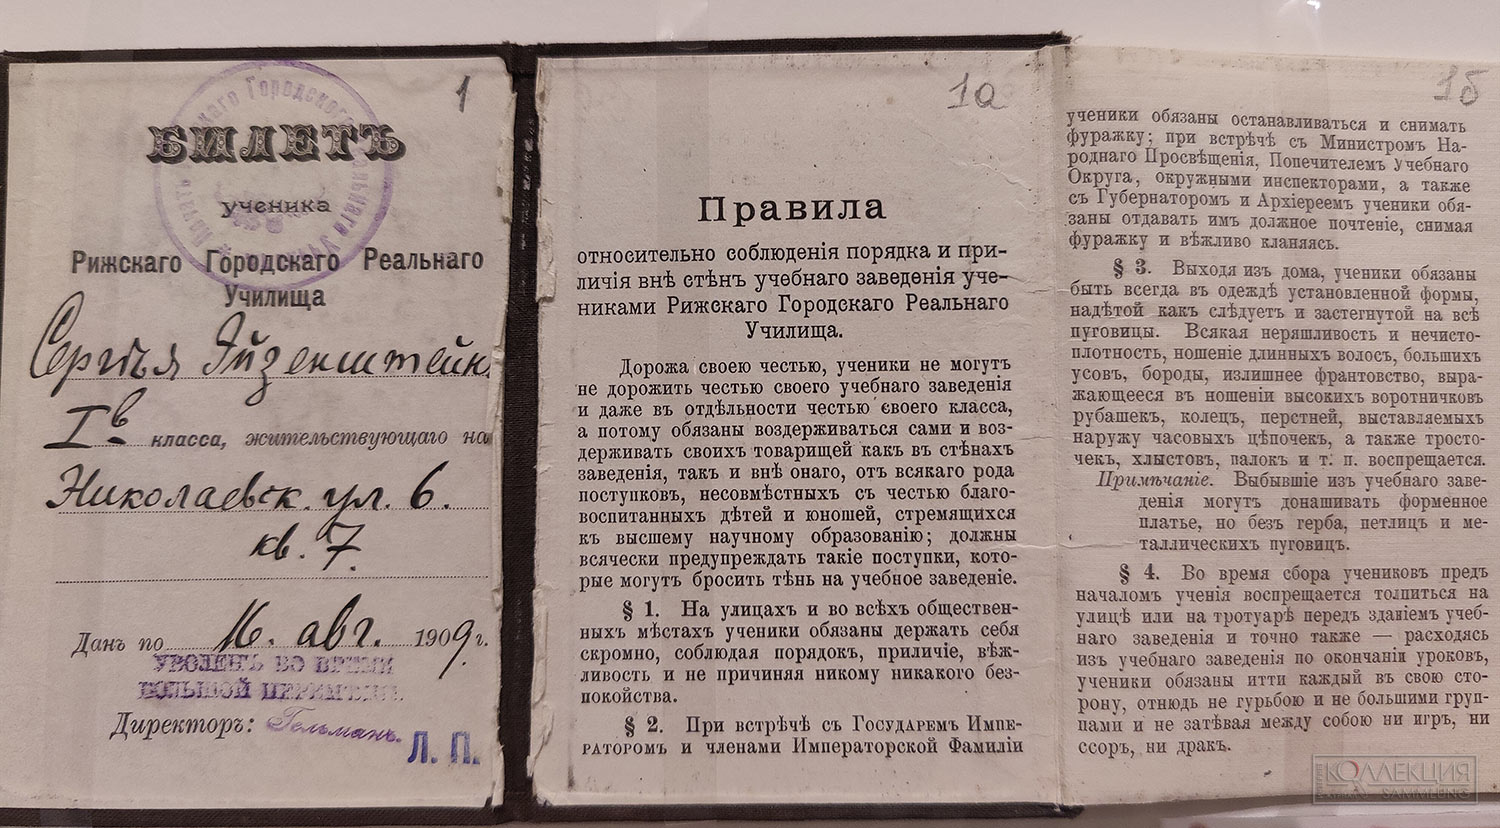 1
БИЛЕТЪ
ученика
Рижскаго Городскаго Реальнаго
Училища
Сергѣя Эйзенштейн
Iв класса, жительствующаго на
Николаевск. ул. 6.
кв. 7.
Данъ по 16. авг. 1909 г.
УВОЛЕНЪ ВО ВРЕМЯ
БОЛЬШОЙ ПЕРЕМѢНЫ.
Директоръ: Гельманъ.
Л. П.
1а
Правила
относительно соблюденія порядка и при-
личія внѣ стѣнъ учебнаго заведенія уче-
никами Рижскаго Городскаго Реальнаго
Училища.
Дорожа своею честью, ученики не могутъ
не дорожить честью своего учебнаго заведенія
и даже въ отдѣльности честью своего класса,
а потому обязаны воздерживаться сами и воз-
держивать своихъ товарищей какъ въ стѣнахъ
заведенія, такъ и внѣ онаго, отъ всякаго рода
поступковъ, несовмѣстныхъ съ честью благо-
воспитанныхъ дѣтей и юношей, стремящихся
къ высшему научному образованію; должны
всячески предупреждать такіе поступки, кото-
рые могутъ бросить тѣнь на учебное заведеніе.
§ 1. На улицахъ и во всѣхъ обществен-
ныхъ мѣстахъ ученики обязаны держать себя
скромно, соблюдая порядокъ, приличіе, вѣж-
ливость и не причиняя никому никакого без-
покойства.
§ 2. При встрѣчѣ съ Государемъ Импе-
раторомъ и членами Императорской Фамиліи
1б
ученики обязаны останавливаться и снимать
фуражку; при встрѣчѣ съ Министромъ На-
роднаго Просвѣщенія, Попечителемъ Учебнаго
Округа, окружными инспекторами, а также
съ Губернаторомъ и Архіереемъ ученики обя-
заны отдавать имъ должное почтеніе, снимая
фуражку и вѣжливо кланяясь.
§ 3. Выходя изъ дома, ученики обязаны
быть всегда въ одеждѣ установленной формы,
надѣтой какъ слѣдуетъ и застегнутой на всѣ
пуговицы. Всякая неряшливость и нечисто-
плотность, ношеніе длинныхъ волосъ, большихъ
усовъ, бороды, излишнее франтовство, выра-
жающееся въ ношеніи высокихъ воротничковъ
рубашекъ, колецъ, перстней, выставляемыхъ
наружу часовыхъ цѣпочекъ, а также тросто-
чекъ, хлыстовъ, палокъ и т. п. воспрещается.
Примѣчаніе. Выбывшіе изъ учебнаго заве-
денія могутъ донашивать форменное
платье, но безъ герба, петлицъ и ме-
таллическихъ пуговицъ.
§ 4. Во время сбора учениковъ предъ
началомъ ученія воспрещается толпиться на
улицѣ или на тротуарѣ передъ зданіемъ учеб-
наго заведенія и точно также — расходясь
изъ учебнаго заведенія по окончаніи уроковъ,
ученики обязаны итти каждый въ свою сто-
рону, отнюдь не гурьбою и не большими груп-
пами и не затѣвая между собою ни игръ, ни
ссоръ, ни дракъ.
КОЛЛЕКЦИЯ
SAMMLUNG